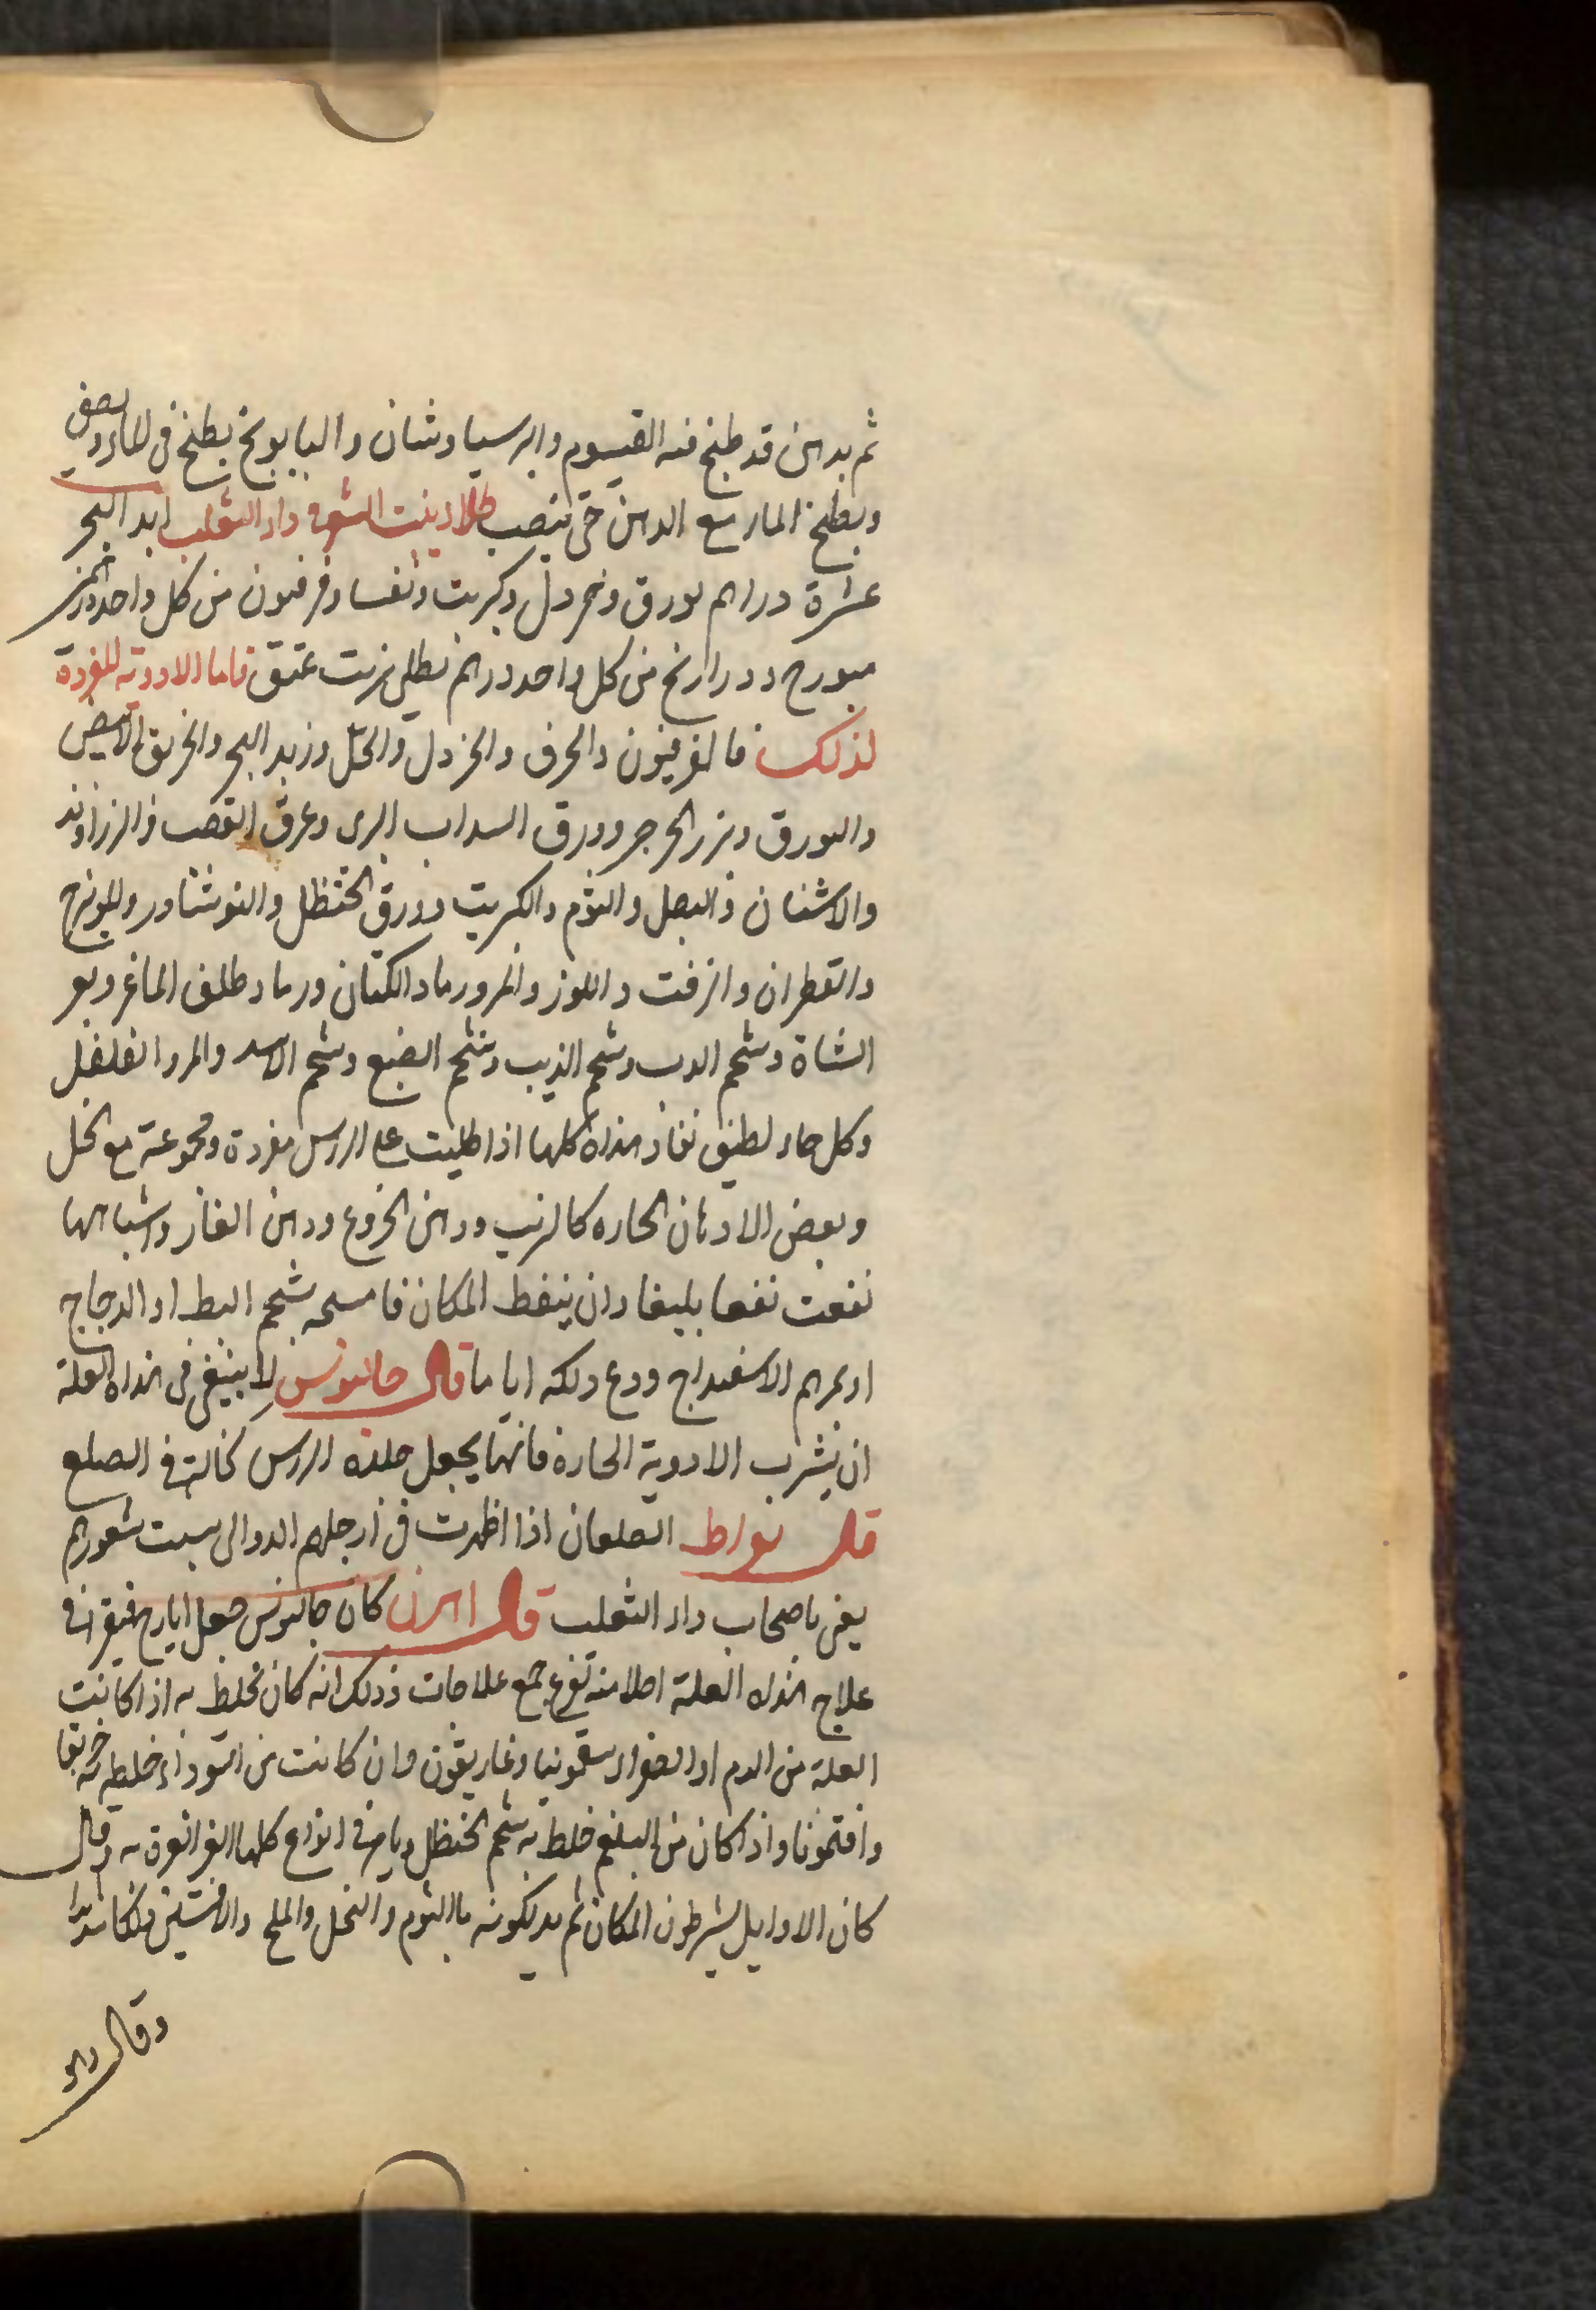 ثم بدهن قد طبخ فيه القيسوم وابرسياوشان والبابونج يطبخ في الماء ويصفى
ويطبخ الماء مع الدهن حتى ينصب طلاء ينبت الشعر في داء الثعلب زبد البحر
عشرة دراهم بورق وخردل وكبريت وثفسا وفرفيون من كل واحد درهمين
ميويزج وذراريح من كل واحد درهم يطلى بزيت عتيق فاما الادوية المفردة
لذلك فالفرفيون والحرف والخردل والخل وزبد البحر والخربق الابيض
والبورق وبزر الجرجير وورق السداب البري وعرق القصب والزراوند
والاشنان والبصل والثوم والكبريت وورق الحنظل والنوشادر والميويزج
والقطران والزفت واللوز والمر ورماد الكتان ورماد ظلف الماعز وبعر
الشاة وشحم الدب وشحم الذيب وشحم الضبع وشحم الاسد والمر والفلفل
وكل حار لطيف نفاذ هذه كلها اذا طليت على الراس مفردة ومجموعة مع الخل
وبعض الادهان الحاره كالزيت ودهن الخروع ودهن الغار واشباهها
نفعت نفعا بليغا وان ينفط المكان فامسحه بشحم البط او الدجاج
او بمرهم الاسفيداج ودع دلكه اياما قال جالينوس لا ينبغي في هذه العلة
ان يشرب الادوية الحارة فانها يجعل جلده الراس كحالته في الصلع
قال بقراط الصلعان اذا ظهرت في ارجلهم الدوالي نبتت شعورهم
يعني باصحاب داء الثعلب قال اهرن كان جالينوس جعل ايارج فيقرا في
علاج هذه العلة اصلا منه تفرع جمع علاجات وذلك انه كان يخلط به اذا كانت
العلة من الدم او الصفراء سقمونيا وغاريقون وان كانت من السوداء خلط به خربقا
وافتيمونا واذا كان من البلغم خلط به شحم الحنظل ويامر في انواع كلها الغرغرة به وقال
كان الاوايل يشرطون المكان ثم يدلكونه بالثوم والنخل والملح والافسنتين دلكا شديدا
وقال